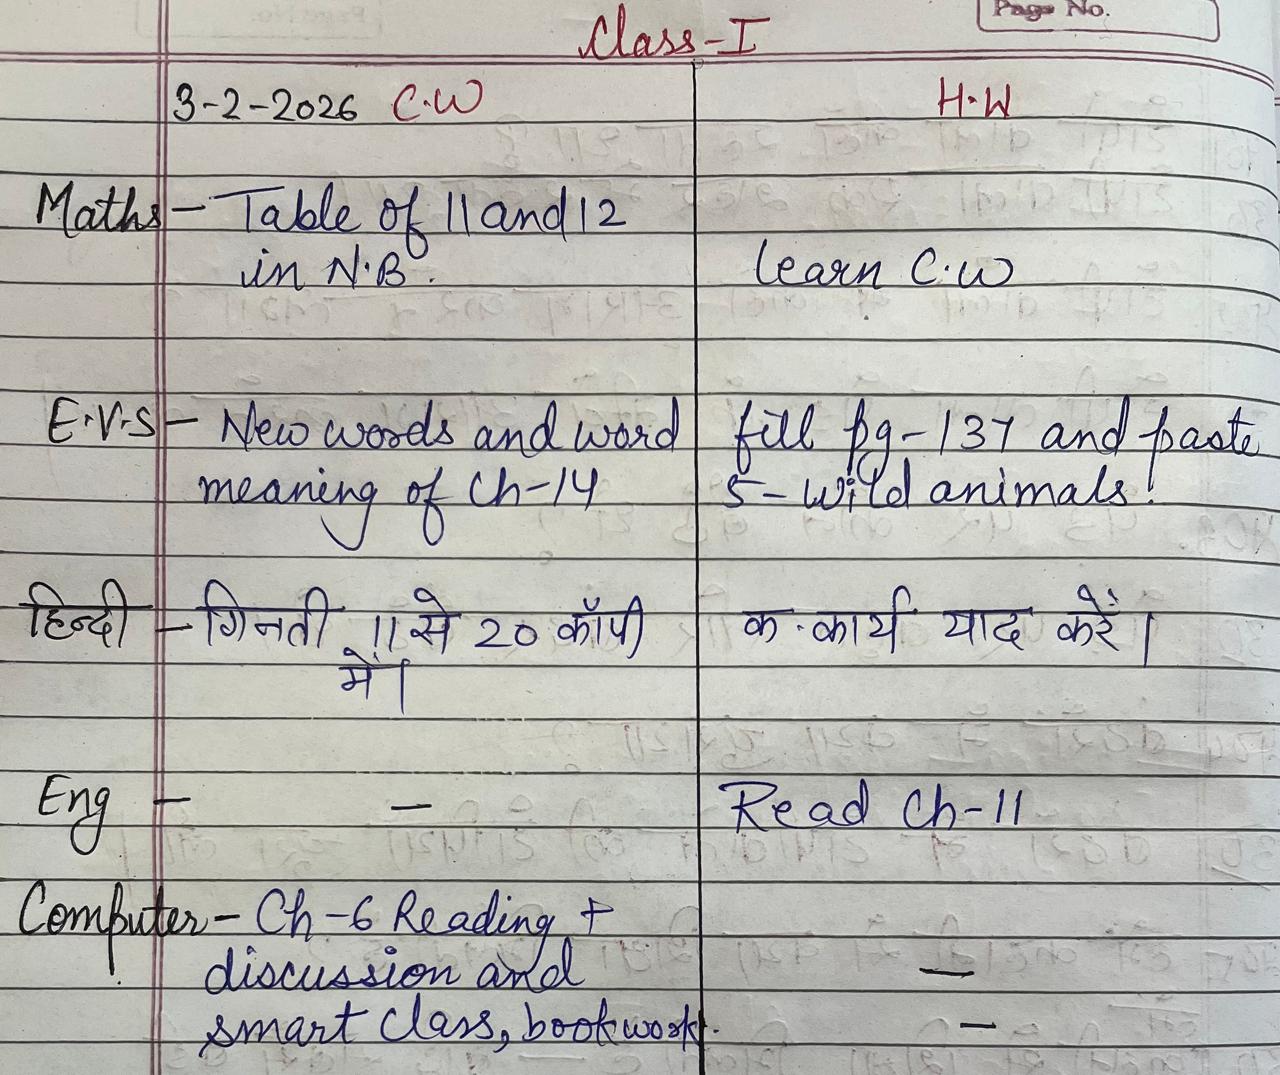 Page No.
Class-I
3-2-2026 C.W H.W
Maths - Table of 11 and 12
in N.B. learn C.W
E.V.S - New words and word fill pg-137 and paste
meaning of Ch-14 5-wild animals!
हिन्दी - गिनती 11 से 20 कॉपी क.कार्य याद करें।
में।
Eng - - Read Ch-11
Computer - Ch-6 Reading +
discussion and -
smart class, bookwork. -